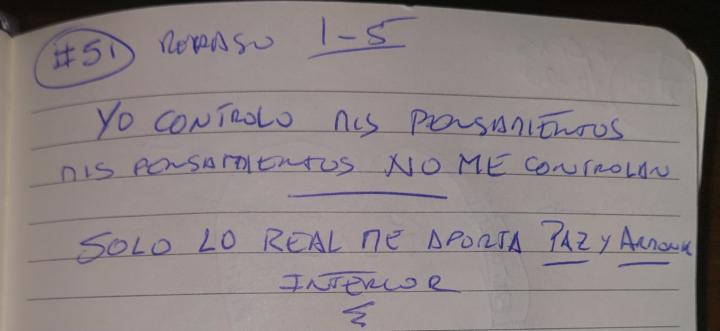 #51 REPASO 1-5
YO CONTROLO MIS PENSAMIENTOS
MIS PENSAMIENTOS NO ME CONTROLAN
SOLO LO REAL ME APORTA PAZ Y ARMONIA
INTERIOR